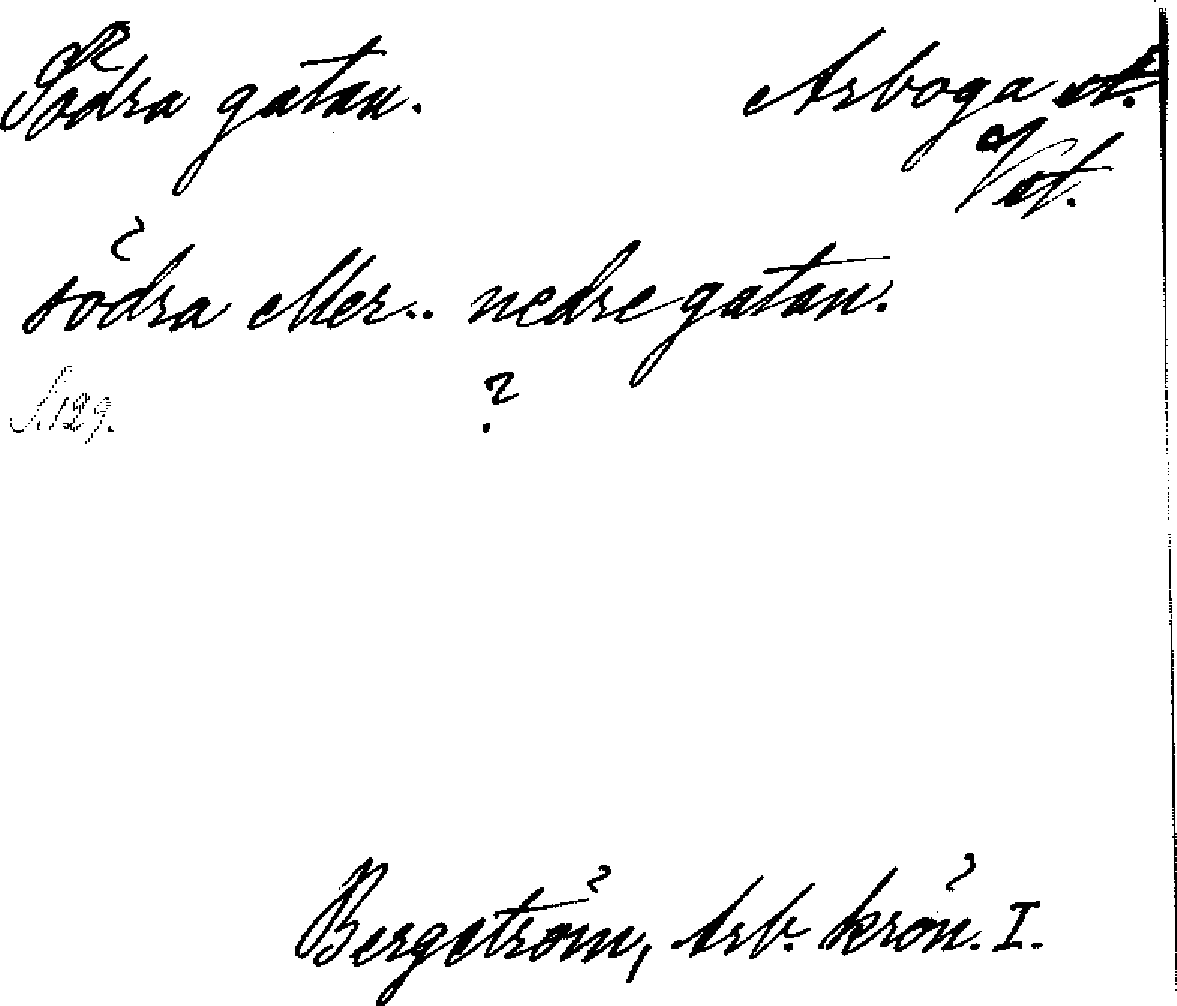 Södra gatan. Arboga st.
Vst.
södra eller.. nedre gatan.
S. 129. ?
Bergström, Arb. krön. I.